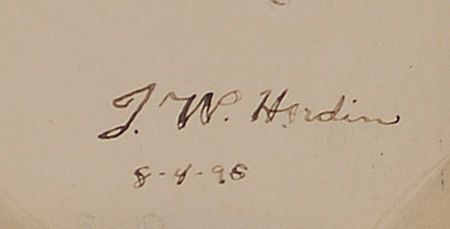 J. W. Hardin
8-4-95